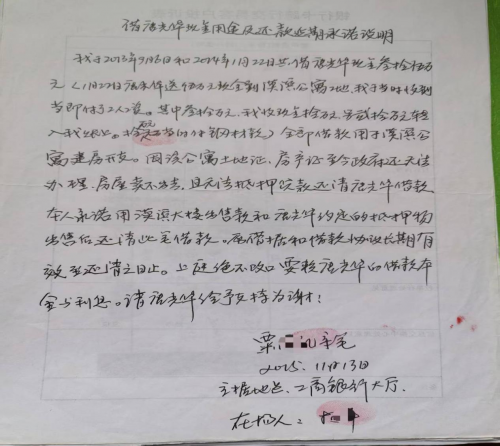 借唐光华现金用途及还款延期承诺说明
我于2013年9月6日和2014年1月22日共借唐光华现金叁拾伍万
元（1月22日唐亲伴送伍万元现金到溪滨公寓工地，我于当时收到
当即付了工人工资。其中叁拾万元，我收现金拾万元另贰拾万元转
入我账上。拾万元当时付钢材款）全部借款用于溪滨公
寓建房开支。因该公寓土地证、房产证至今政府还无法
办理，房屋卖不出去，且无法抵押贷款还请唐光华借款
本人承诺用溪滨大楼出售款和唐光华约定的抵押物
出售后还清此笔借款。原借据和借款协议长期有
效至还清之日止。上庭绝不改口 要赖唐光华的借款本
金与利息。请唐光华给予支持为谢！
粟 亲笔
2015. 11月13日
立据地点：工商银行大厅.
在场人：